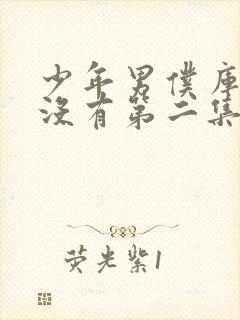 少年男僕庫
沒有第二集
荧光紫1